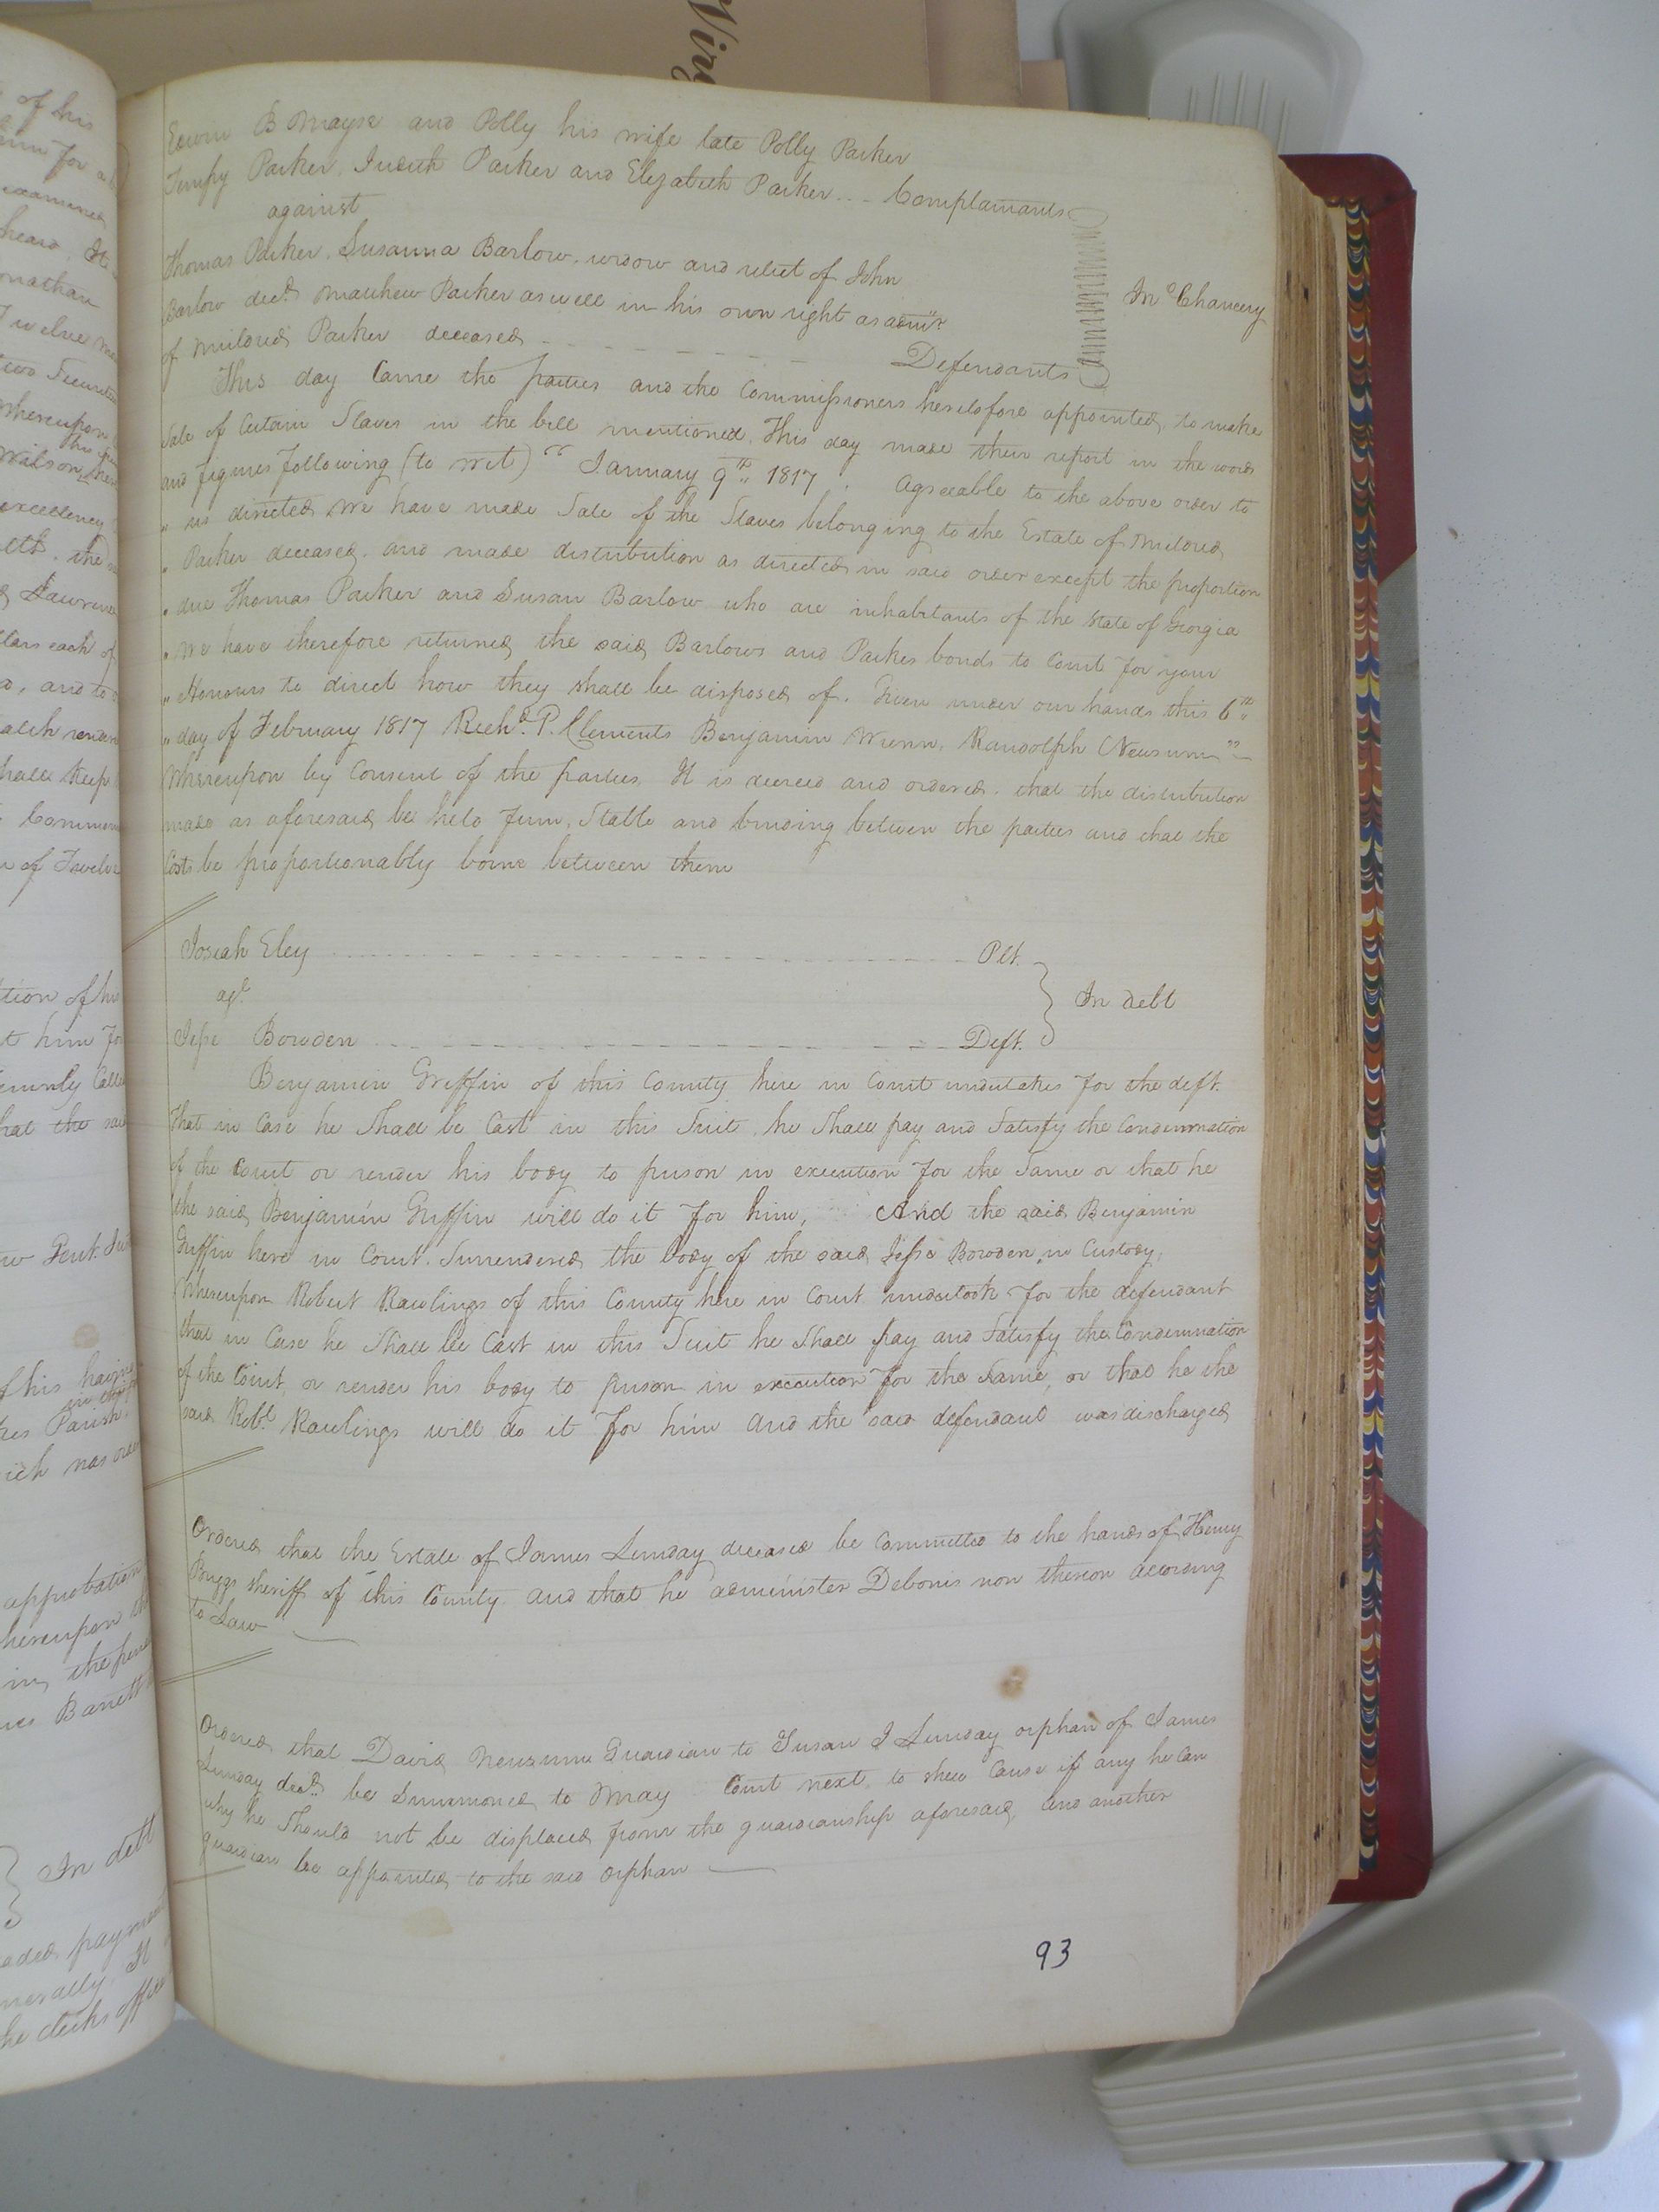 Edwin B Mayse and Polly his wife late Polly Parker
Tempy Parker, Judith Parker and Elizabeth Parker ... Complainants
against
Thomas Parker, Susanna Barlow, widow and relict of John
Barlow decd. Matthew Parker as well in his own right as admr.
of Mildred Parker deceased Defendants
In Chancery
This day Came the parties and the Commissioners heretofore appointed, to make
Sale of Certain Slaves in the bill mentioned, This day made their report in the words
and figures following (to wit) "January 9th 1817. Agreeable to the above order to
" us directed we have made Sale of the Slaves belonging to the Estate of Mildred
" Parker deceased, and made distribution as directed in said order except the proportion
" due Thomas Parker and Susan Barlow who are inhabitants of the State of Georgia
" We have therefore returned the said Barlows and Parkes bonds to Court for your
" Honours to direct how they shall be disposed of. Given under our hands this 6th
" day of February 1817 Richd. P. Clements Benjamin Wrenn, Randolph Newsum"
Whereupon by Consent of the parties, It is decreed and ordered, that the distribution
made as aforesaid be held firm, Stable and binding between the parties and that the
Costs be proportionably borne between them
Josiah Eley Plt.
agt
Jesse Bowden Deft.
In debt
Benjamin Griffin of this County here in Court undertakes for the deft.
that in Case he Shall be Cast in this Suit, he Shall pay and Satisfy the Condemnation
of the Court or render his body to prison in execution for the Same or that he
the said Benjamin Griffin will do it for him, And the said Benjamin
Griffin here in Court, Surrendered the body of the said Jesse Bowden in Custody,
Whereupon Robert Rawlings of this County here in Court undertook for the defendant
that in Case he Shall be Cast in this Suit he Shall pay and Satisfy the Condemnation
of the Court, or render his body to prison in execution for the Same, or that he the
said Robt. Rawlings will do it for him and the said defendant was discharged
Ordered that the Estate of James Lunday deceased be Committed to the hands of Henry
Briggs Sheriff of this County and that he administer Debonis non thereon according
to Law
Ordered that David Newsum Guardian to Susan J Lunday orphan of James
Lunday decd. be Summoned to May Court next to shew Cause if any he Can
why he Should not be displaced from the guardianship aforesaid, and another
guardian be appointed to the said Orphan
93